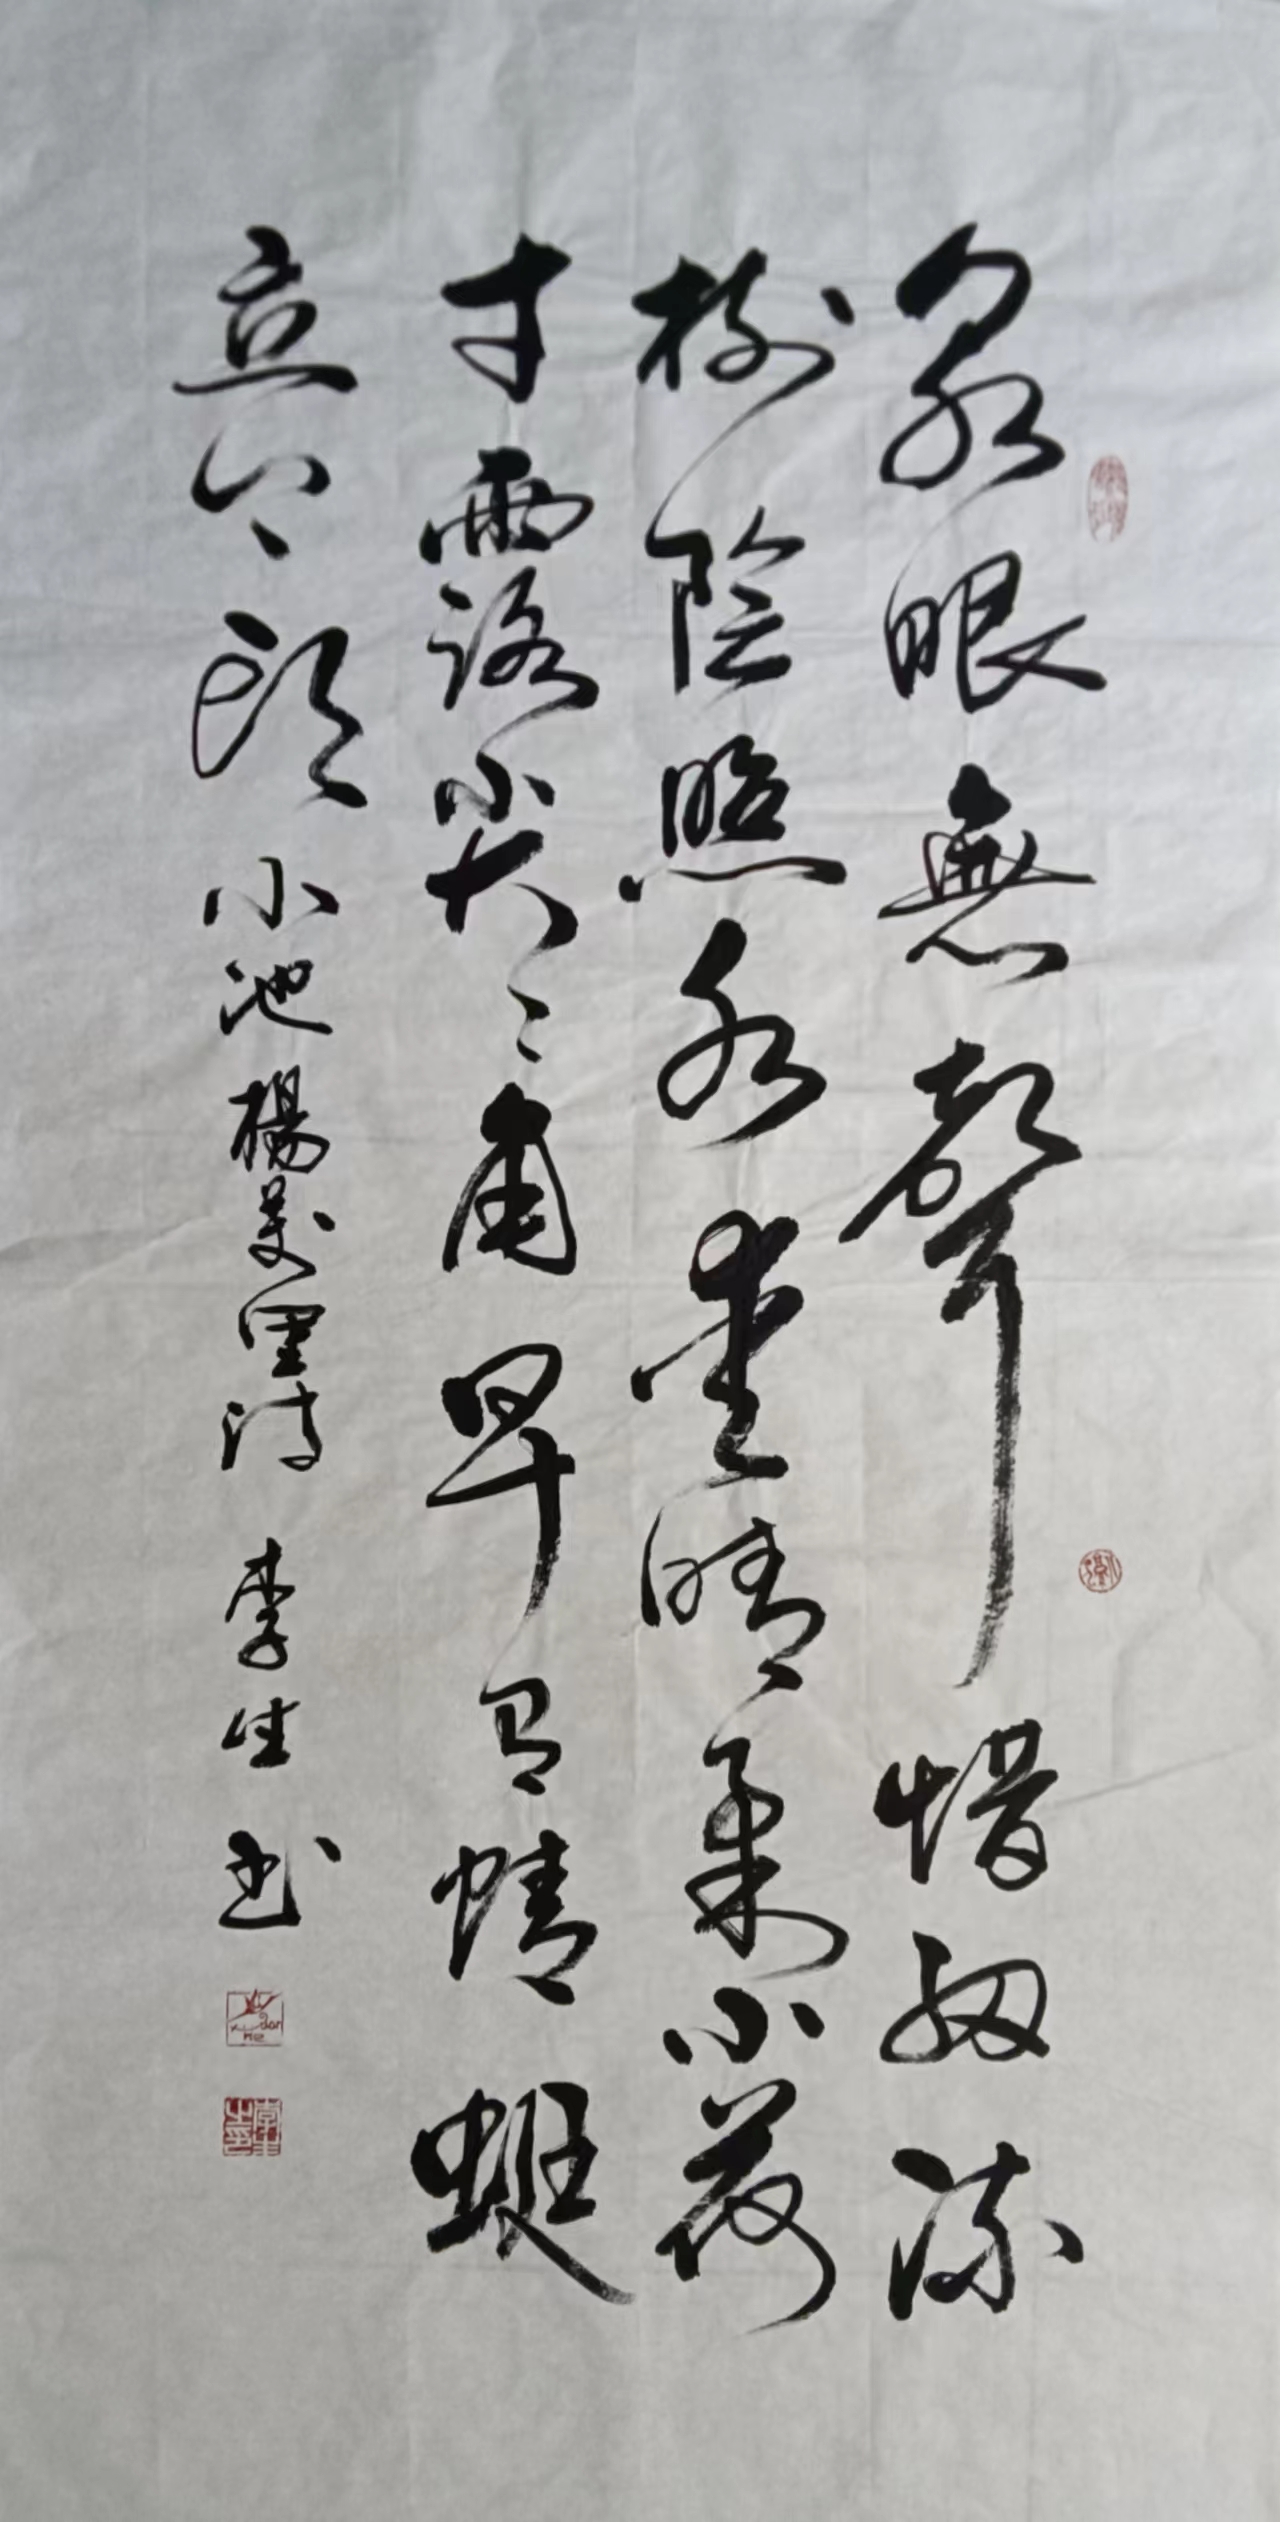 泉眼無聲惜細流
樹陰照水愛晴柔小荷
才露尖尖角早有蜻蜓
立上頭小池楊萬里詩李生書